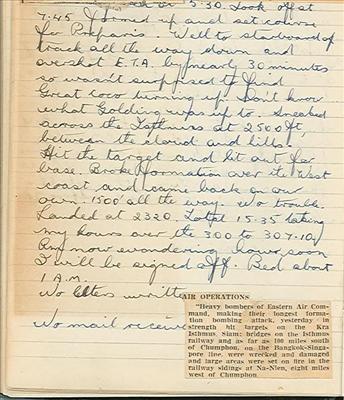 at 15.30. Took off at
7.45 Formed up and set course
for Preparis. Well to starboard of
track all the way down and
overshot E.T.A. by nearly 30 minutes
so wasn't surprised to find
Great Coco turning up. Don't know
what Golding was up to. Sneaked
across the Isthmus at 2500 ft,
between the cloud and hills.
Hit the target and lit out for
base. Broke formation over the West
coast and came back on our
own. 1500' all the way. No trouble.
Landed at 2320. Total 15.35 taking
my hours over the 300 to 307.10.
Am now wondering how soon
I will be signed off. Bed about
1 A.M.
No letters written
No mail received
AIR OPERATIONS
"Heavy bombers of Eastern Air Com-
mand, making their longest forma-
tion bombing attack, yesterday in
strength hit targets on the Kra
Isthmus, Siam; bridges on the Isthmus
railway and as far as 100 miles south
of Chumphon, on the Bangkok-Singa-
pore line, were wrecked and damaged
and large areas were set on fire in the
railway sidings at Na-Nien, eight miles
west of Chumphon.